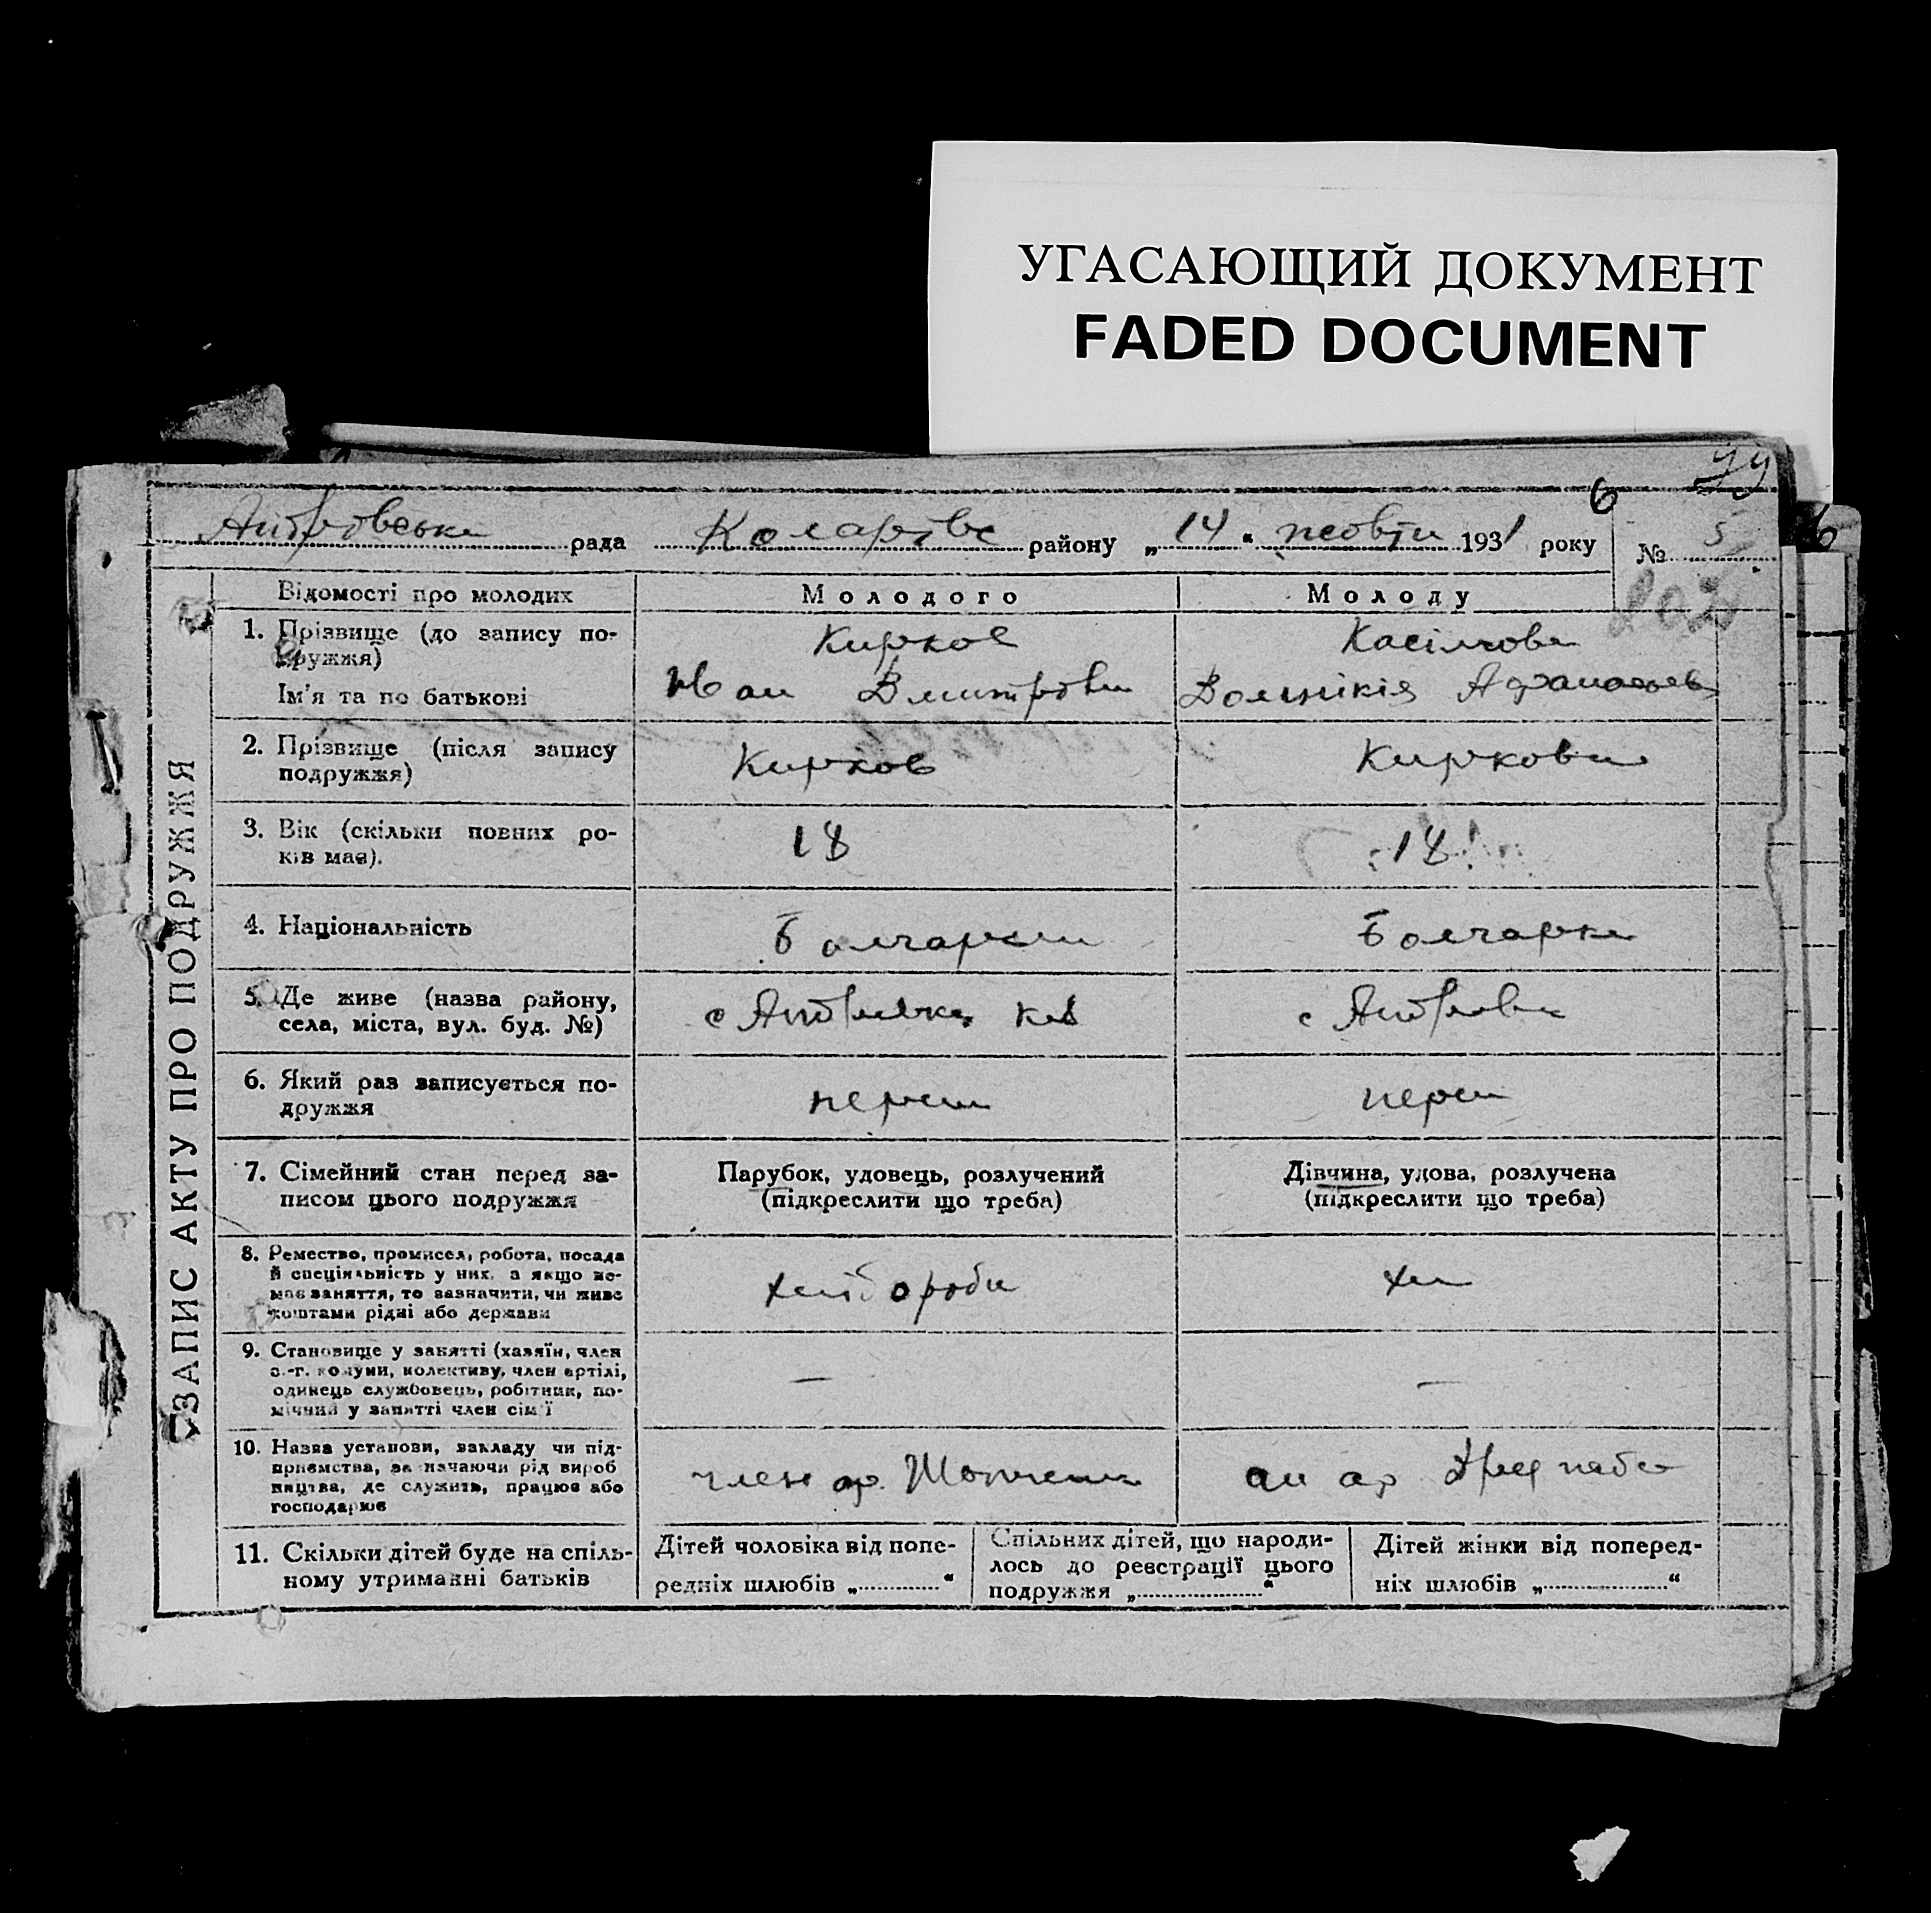 УГАСАЮЩИЙ ДОКУМЕНТ
FADED DOCUMENT
6
рада Коларівс району „14“ жовтн 1931 року № 5
ЗАПИС АКТУ ПРО ПОДРУЖЖЯ
Відомості про молодих Молодого Молоду
1. Прізвище (до запису по-
дружжя)
Кирков Касімова
Ім'я та по батькові Іван Дмитрови Афанасьев
2. Прізвище (після запису
подружжя)
Кирков Киркова
3. Вік (скільки повних ро-
ків має).
18 18
4. Національність Болгарин Болгарка
5. Де живе (назва району,
села, міста, вул. буд. №)
с с
6. Який раз записується по-
дружжя
перши перш
7. Сімейний стан перед за-
писом цього подружжя
Парубок, удовець, розлучений
(підкреслити що треба)
Дівчина, удова, розлучена
(підкреслити що треба)
8. Ремество, промисел, робота, посада
й спеціяльність у них, а якщо не-
має заняття, то зазначити, чи живе
коштами рідні або держави
хлібороби хл
9. Становище у занятті (хазяїн, член
с.-г. комуни, колективу, член артілі,
одинець службовець, робітник, по-
мічний у занятті член сім'ї
— —
10. Назва установи, закладу чи під-
приємства, зазначаючи рід вироб
ництва, де служить, працює або
господарює
член ар.
11. Скільки дітей буде на спіль-
ному утриманні батьків
Дітей чоловіка від попе-
редніх шлюбів „............“
Спільних дітей, що народи-
лось до реєстрації цього
подружжя „............“
Дітей жінки від поперед-
ніх шлюбів „............“